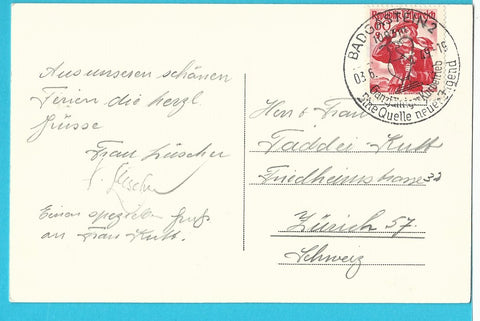 Aus unseren schönen
Ferien die herzl.
Grüsse
Frau Lüscher
Lüscher
Einen speziellen Gruß
an Frau Kutt.
REPUBLIK ÖSTERREICH
60
BADGASTEIN 2
03.6.
-16
Ganzjähriger Kurbetrieb
Eine Quelle neuer Jugend
Herr u Frau
Taddei Kutt
Friedheimstrasse 32
Zürich 57.
Schweiz